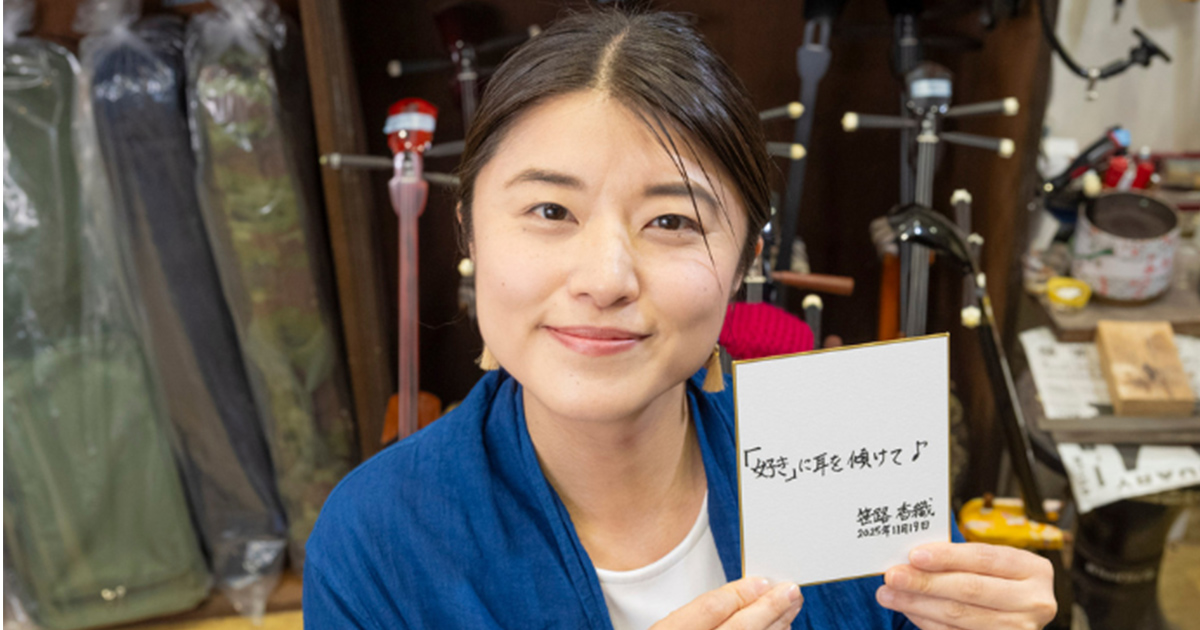 「好き」に耳を傾けて♪
笹路 香織
2025年11月19日